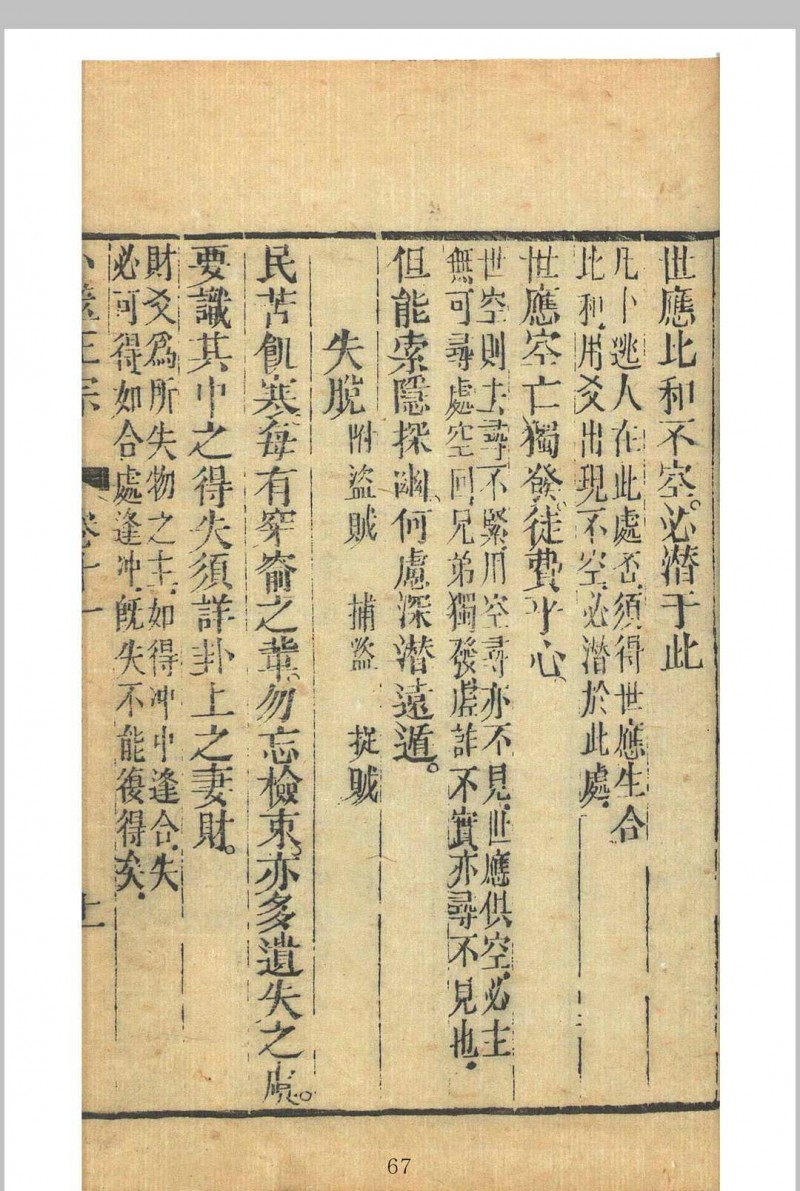 世應比和不空。必潛于此
凡卜逃人在此處否。須得世應生合
比和。用爻出現不空。必潛於此處。
世應空亡獨發。徒費乎心
世空則主尋不緊。用空尋亦不見。世應俱空。必主
無可尋處空回。兄弟獨發。虛詐不實。亦尋不見也。
但能索隱探幽。何慮深潛遠遁。
失脫 附盜賊 捕盜 捉賊
民苦飢寒。每有穿窬之輩。勿忘檢束。亦多遺失之虞。
要識其中之得失。須詳卦上之妻財。
財爻爲所失物之主。如得冲中逢合。失
必可得。如合處逢冲。旣失不能復得矣。
卜筮正宗 卷十一
67